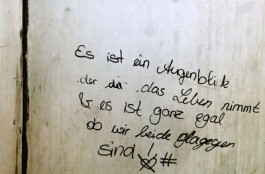 Es ist ein Augenblick
der dir das Leben nimmt
& es ist ganz egal
ob wir beide dagegen
sind ! #